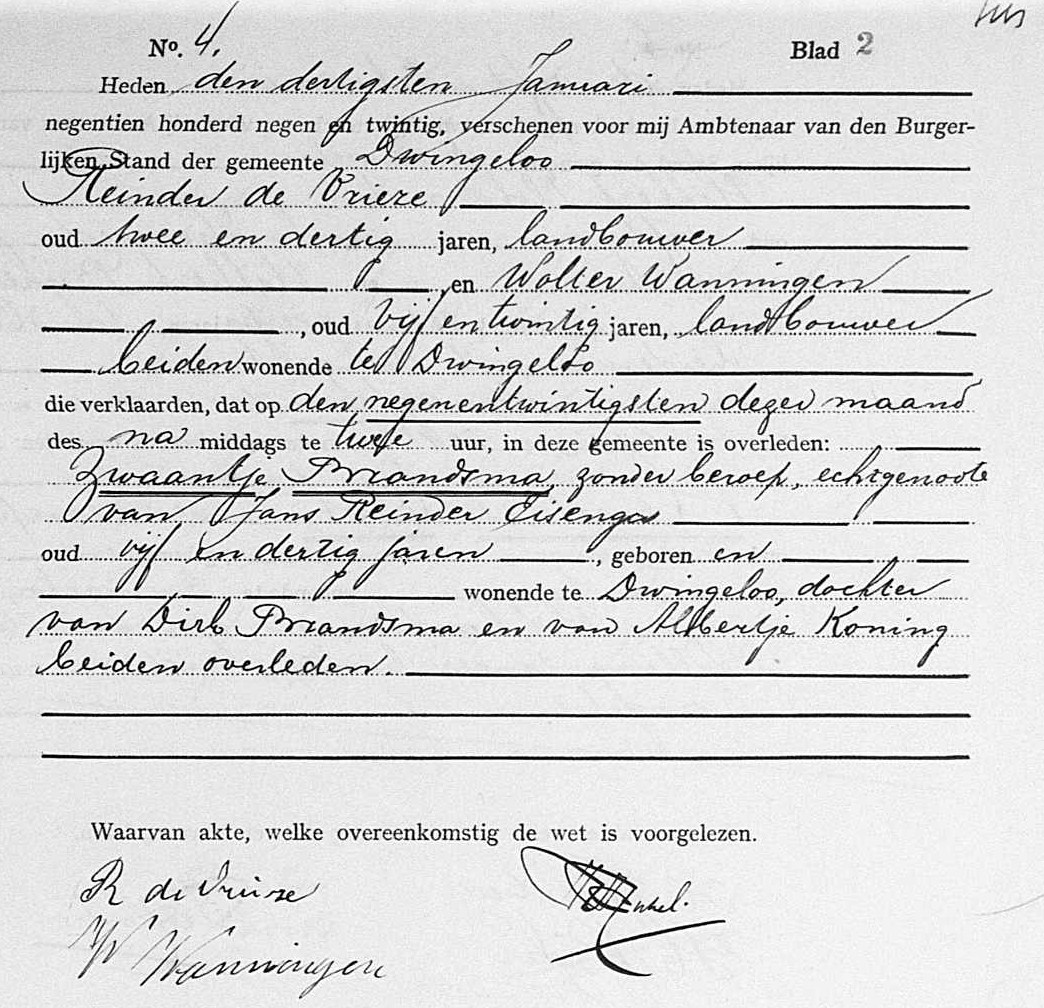 No. 4. Blad 2
Heden den dertigsten Januari
negentien honderd negen en twintig, verschenen voor mij Ambtenaar van den Burger-
lijken Stand der gemeente Dwingeloo
Reinder de Vrieze
oud twee en dertig jaren, landbouwer
en Wolter Wanningen
, oud vijf en twintig jaren, landbouwer
beiden wonende te Dwingeloo
die verklaarden, dat op den negenentwintigsten dezer maand
des na middags te twee uur, in deze gemeente is overleden:
Zwaantje Brandsma, zonder beroep, echtgenoote
van Jans Reinder Eisenga
oud vijf en dertig jaren, geboren en
wonende te Dwingeloo, dochter
van Dirk Brandsma en van Albertje Koning
beiden overleden.
Waarvan akte, welke overeenkomstig de wet is voorgelezen.
R de Vrieze
W Wanningen